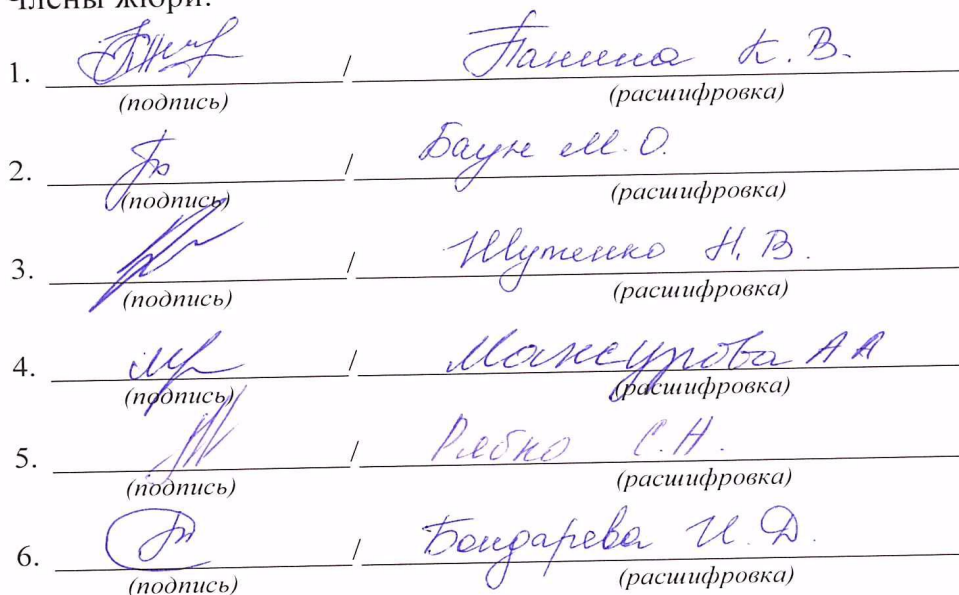 Члены жюри:
1. / Панина К. В.
(подпись) (расшифровка)
2. / Баун М. О.
(подпись) (расшифровка)
3. / Шутенко Н. В.
(подпись) (расшифровка)
4. / Мансурова А А
(подпись) (расшифровка)
5. / Рябко С. Н.
(подпись) (расшифровка)
6. / Бондарева И. Д.
(подпись) (расшифровка)